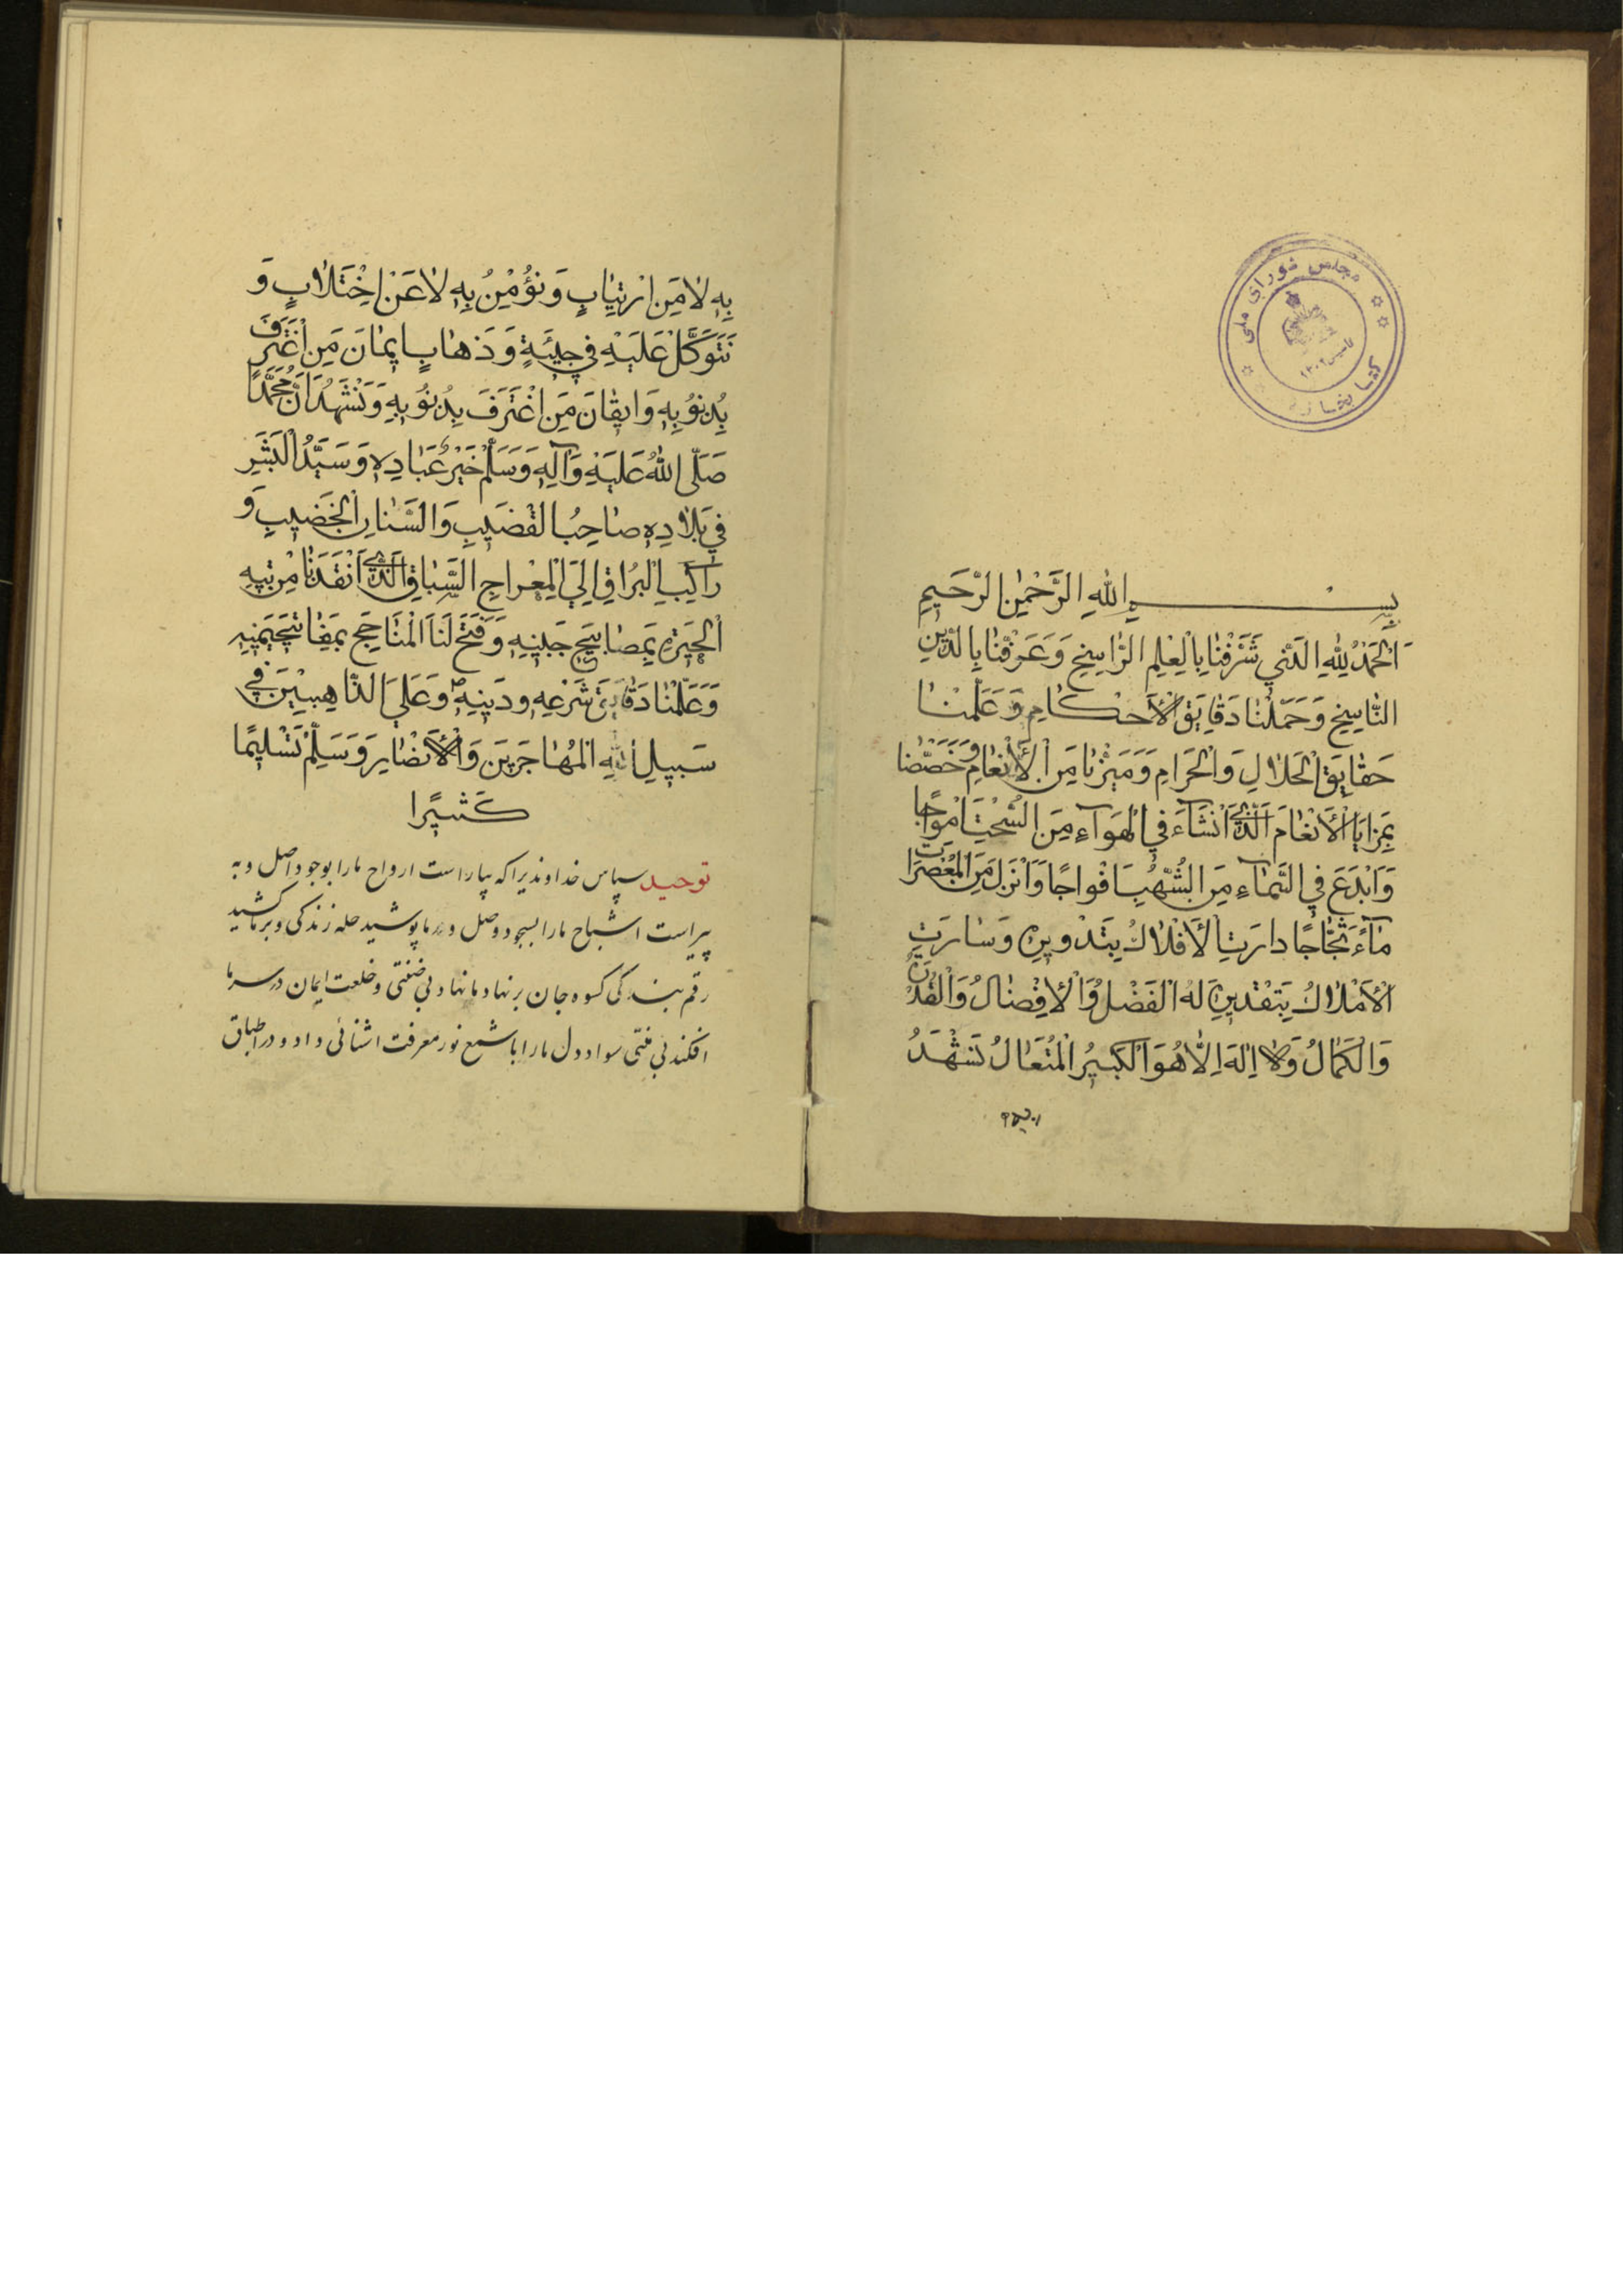 مجلس شورای ملی
کتابخانه
تاسیس ۱۳۰۲
بِسْمِ اللهِ الرَّحْمٰنِ الرَّحِيمِ
اَلْحَمْدُ لِلّٰهِ الَّذِي شَرَّفَنَا بِالْعِلْمِ الرَّاسِخِ وَعَرَّفَنَا بِالدِّينِ
النَّاسِخِ وَحَمَّلَنَا دَقَايِقَ الْأَحْكَامِ وَعَلَّمَنَا
حَقَايِقَ الْحَلَالِ وَالْحَرَامِ وَمَيَّزَنَا مِنَ الْأَنْعَامِ وَخَصَّصَنَا
بِمَزَايَا الْأَنْعَامِ الَّذِي اَنْشَاءَ فِي الْهَوَاءِ مِنَ السُّحُبِ اَمْوَاجًا
وَاَبْدَعَ فِي السَّمَاءِ مِنَ الشُّهُبِ اَفْوَاجًا وَاَنْزَلَ مِنَ الْمُعْصِرَاتِ
مَاءً ثَجَّاجًا دَارَتِ الْأَفْلَاكُ بِتَدْوِيرِهِ وَسَارَتِ
الْأَمْلَاكُ بِتَقْدِيرِهِ لَهُ الْفَضْلُ وَالْأَفْضَالُ وَالْقُدْرَةُ
وَالْكَمَالُ وَلَا اِلٰهَ اِلَّا هُوَ الْكَبِيرُ الْمُتَعَالُ نَشْهَدُ
بِهِ لَا مِنِ ارْتِيَابٍ وَنُؤْمِنُ بِهِ لَا عَنِ اخْتِلَابٍ وَ
نَتَوَكَّلُ عَلَيْهِ فِي جِيئَةٍ وَذَهَابٍ اِيمَانَ مَنِ اعْتَرَفَ
بِذُنُوبِهِ وَاِيقَانَ مَنِ اغْتَرَفَ بِذَنُوبِهِ وَنَشْهَدُ اَنَّ مُحَمَّدًا
صَلَّى اللهُ عَلَيْهِ وَآلِهِ وَسَلَّمَ خَيْرُ عِبَادِهِ وَسَيِّدُ الْبَشَرِ
فِي بِلَادِهِ صَاحِبُ الْقَضِيبِ وَالسِّنَانِ الْخَضِيبِ وَ
رَاكِبُ الْبُرَاقِ اِلَى الْمِعْرَاجِ السَّبَاقِ الَّذِي اَنْقَذَنَا مِنْ تِيهِ
الْحَيْرَةِ بِمَصَابِيحِ جَبِينِهِ وَفَتَحَ لَنَا الْمَنَاجِحَ بِمَفَاتِيحِ يَمِينِهِ
وَعَلَّمَنَا دَقَايِقَ شَرْعِهِ وَدِينِهِ وَعَلَى الذَّاهِبِينَ فِي
سَبِيلِ اللهِ الْمُهَاجِرِينَ وَالْأَنْصَارِ وَسَلِّمْ تَسْلِيمًا
كَثِيرًا
توحید سپاس خداوندیرا که بیاراست ارواح مارا بوجود اصل و به
پیراست اشباح مارا بسجود وصل و در ما پوشید حله زندگی و بر ما کشید
رقم بندگی کسوه جان بر نهاد ما نهاد بی ضنتی و خلعت ایمان در سر ما
افکند بی منتی سواد دل مارا با شمع نور معرفت اشنائی داد و در اطباق